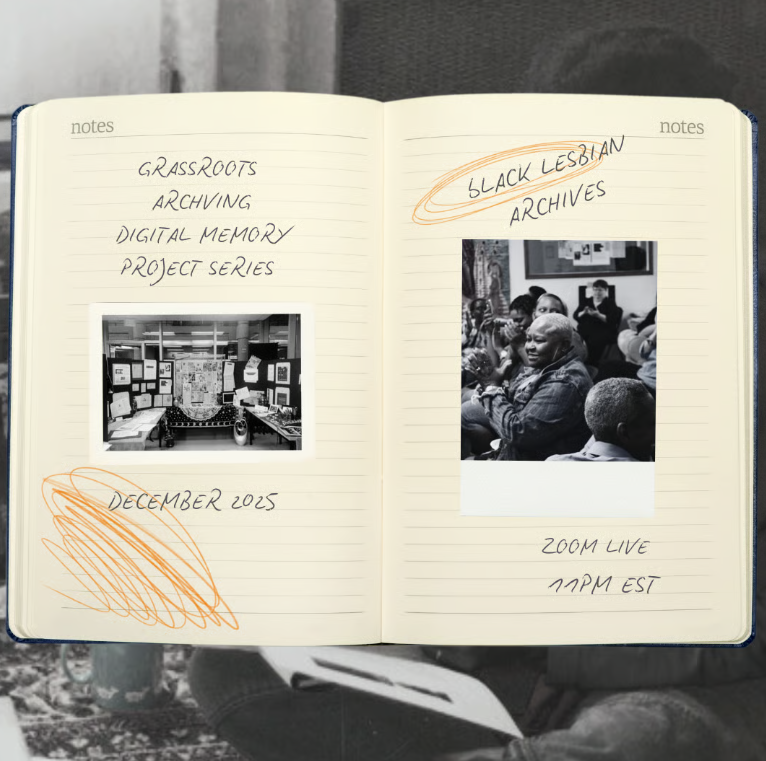 notes
GRASSROOTS
ARCHVING
DIGITAL MEMORY
PROJECT SERIES
DECEMBER 2025
notes
BLACK LESBIAN
ARCHIVES
ZOOM LIVE
11PM EST